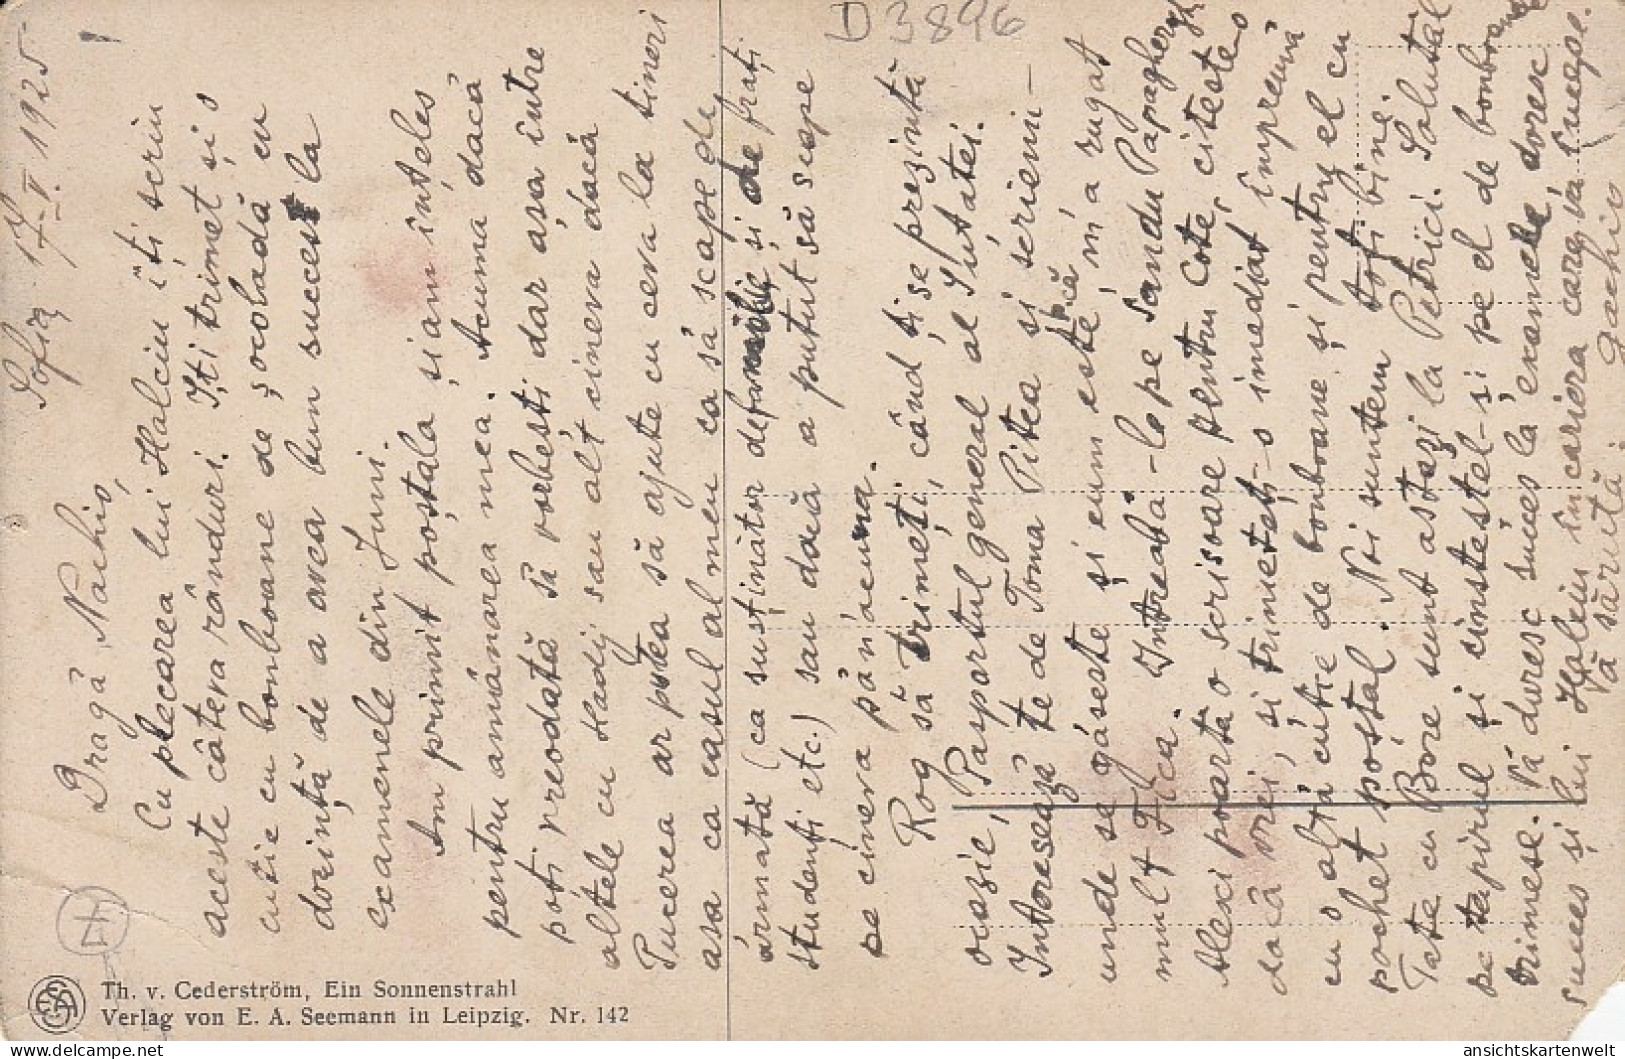 D 3896
Sofia 17-V. 1925
Dragă Nachio,
Cu plecarea lui Halciu îți scriu
aceste câteva rânduri. Iți trimet și o
cutie cu bomboane de șocoladă cu
dorință de a avea bun succes la
examenele din Juni.
Am primit poștala și am înțeles
pentru amânarea mea. Acuma dacă
poți vreodată să vorbești dar așa între
altele cu Hadij sau alt cineva dacă
Pucerea ar putea să ajute cu ceva la tineri
asa ca casul al meu ca să scape de
ármată (ca susținător de familie și de frați
studenți etc.) sau dacă a putut să scape
pe cineva păn'acuma.
Rog să'trimeți, când ți se prezintă
ocazie, Pasportul general al Sutatei.
Intoresează te de Toma Pitea și scrieni-
unde se găsește și cum este, că m'a rugat
mult Fica. Intreabă-lo pe Sandu Papagheorghi
Alexi poartă o scrisoare pentru Cote, citeste o
dacă vrei, și trimeteți-o imediat împreună
cu o altă cutie de bomboane și pentru el cu
pochet poștal. Noi suntem toți bine.
Tate cu Bore sunt astazi la Petrici. Salutări
pe tapirul și cinstestel-și pe el de bomboane
trimese. Vă duresc succes la examene, doresc
succes și lui Halciu în cariera care va încuepe.
Vă sărută: Gachio
Th. v. Cederström, Ein Sonnenstrahl
Verlag von E. A. Seemann in Leipzig. Nr. 142
ansichtskartenwelt